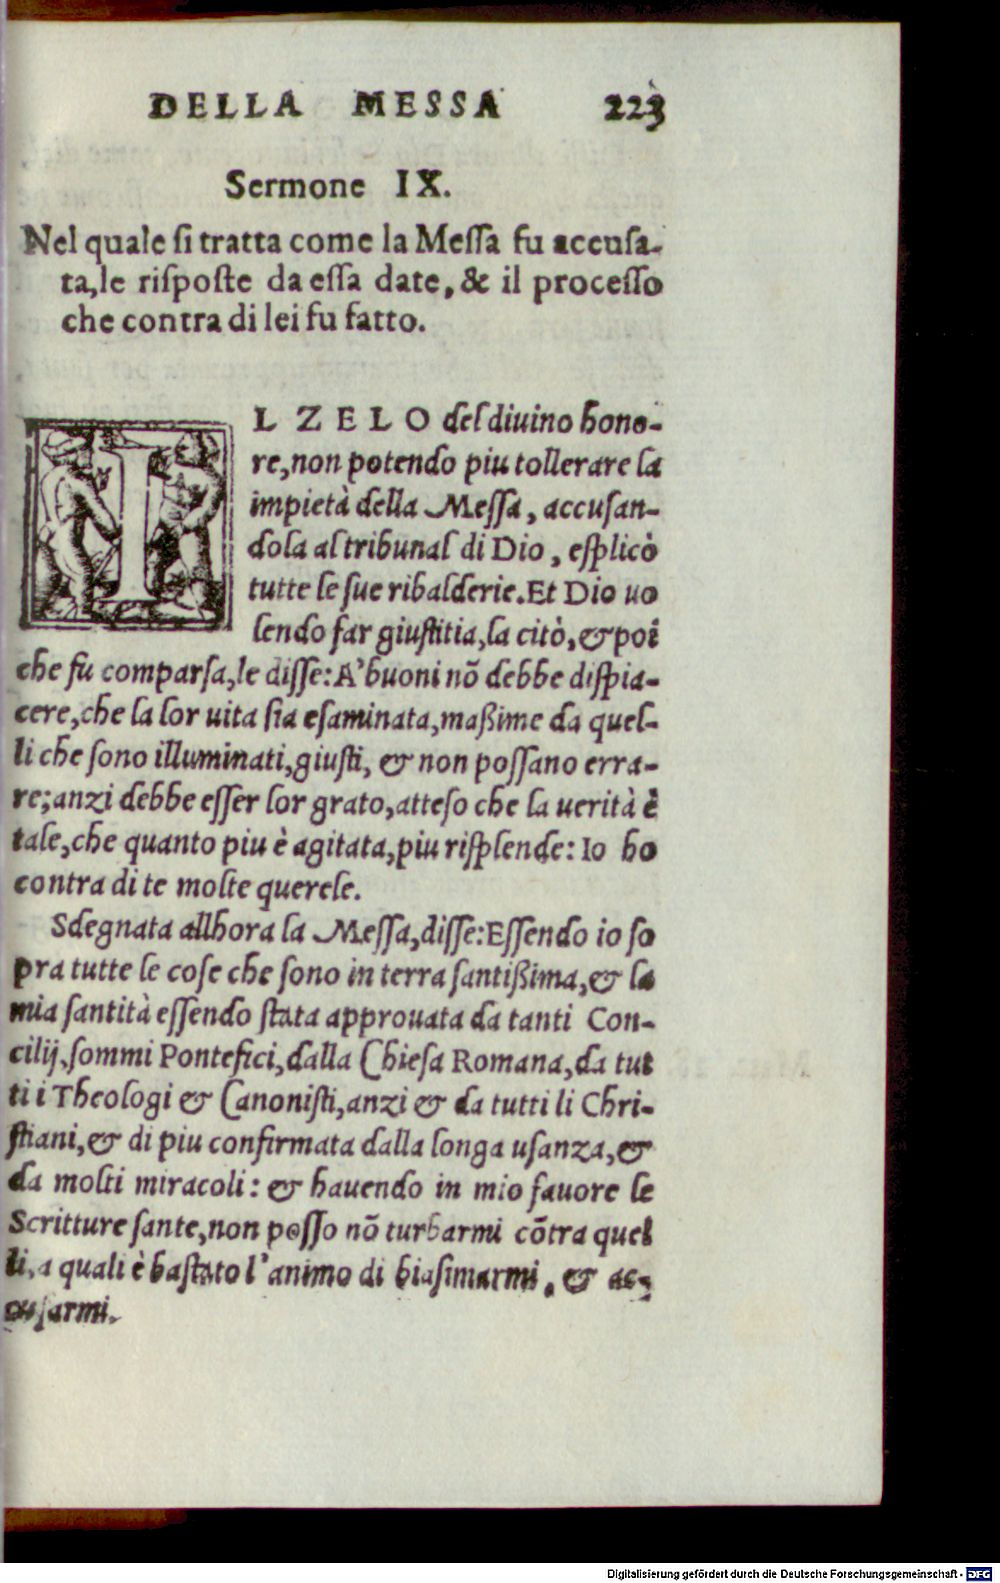 DELLA MESSA 223
Sermone IX.
Nel quale si tratta come la Messa fu accusa-
ta, le risposte da essa date, & il processo
che contra di lei fu fatto.
IL ZELO del diuino hono-
re, non potendo piu tollerare la
impietà della Messa, accusan-
dola al tribunal di Dio, esplicò
tutte le sue ribalderie. Et Dio uo
lendo far giustitia, la citò, & poi
che fu comparsa, le disse: A' buoni nõ debbe dispia-
cere, che la lor uita sia esaminata, maßime da quel-
li che sono illuminati, giusti, & non possano erra-
re; anzi debbe esser lor grato, atteso che la uerità è
tale, che quanto piu è agitata, piu risplende: Io ho
contra di te molte querele.
Sdegnata allhora la Messa, disse: Essendo io so
pra tutte le cose che sono in terra santißima, & la
mia santità essendo stata approuata da tanti Con-
cilij, sommi Pontefici, dalla Chiesa Romana, da tut
ti i Theologi & Canonisti, anzi & da tutti li Chri-
stiani, & di piu confirmata dalla longa usanza, &
da molti miracoli: & hauendo in mio fauore le
Scritture sante, non posso nõ turbarmi cõtra quel
li, a quali è bastato l'animo di biasimarmi, & ac-
cusarmi.
Digitalisierung gefördert durch die Deutsche Forschungsgemeinschaft - DFG